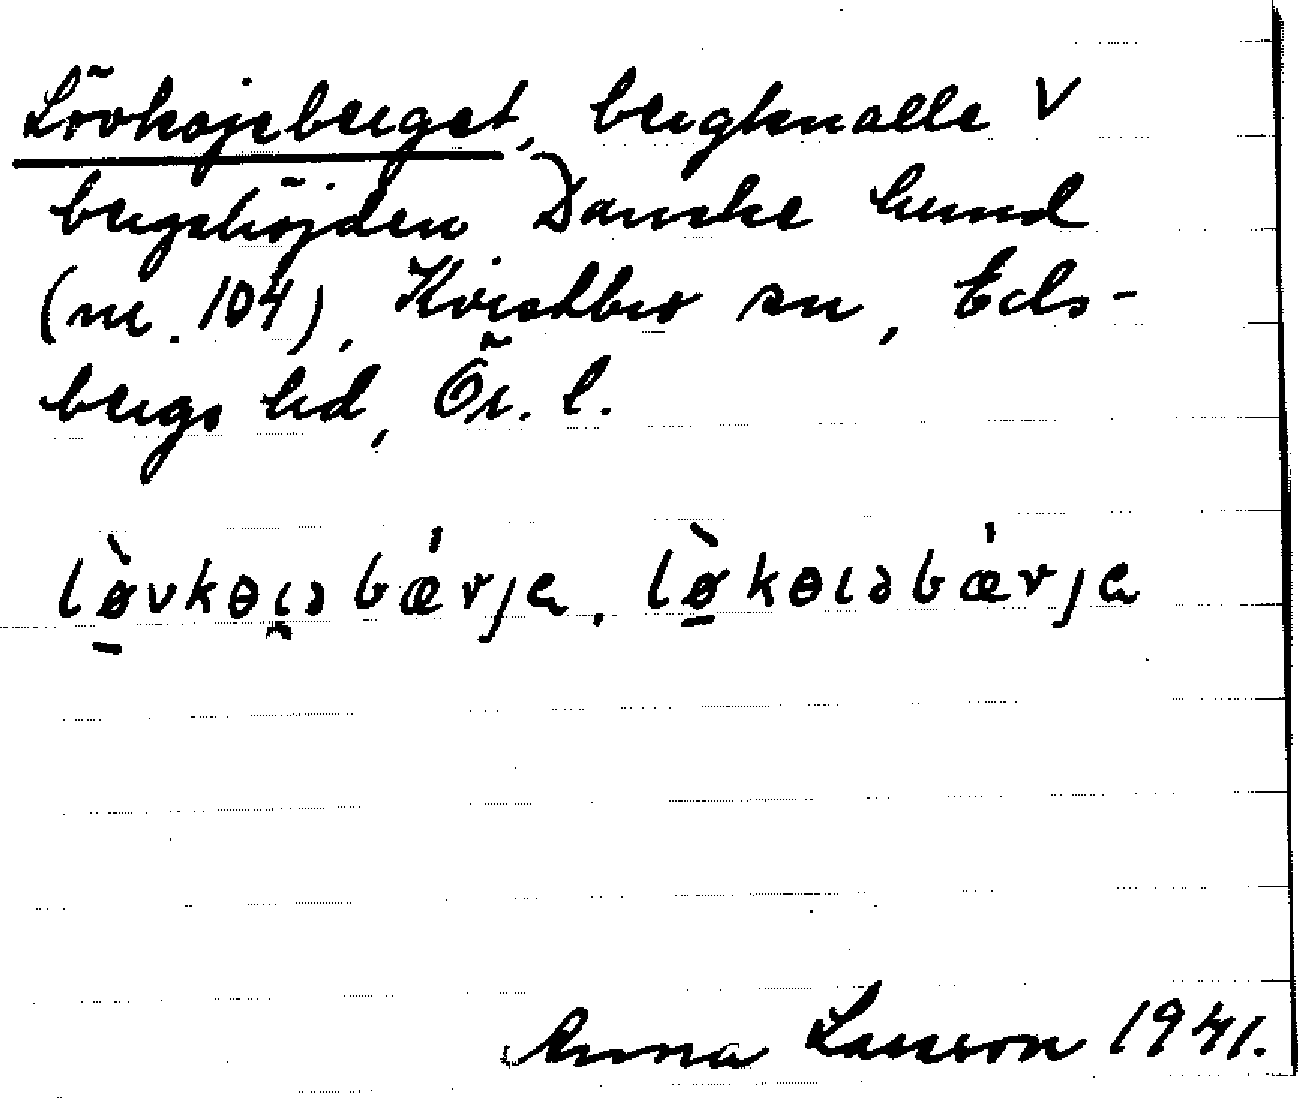 Lövkojeberget, bergknalle V
bergshöjden Danske lund
(nr. 104), Kvistbro sn, Eds-
bergs hd, Ör. l.
lø̀vkɵı̯əbǽrja, lø̀kɵıəbǽrja
Anna Larsson 1941.